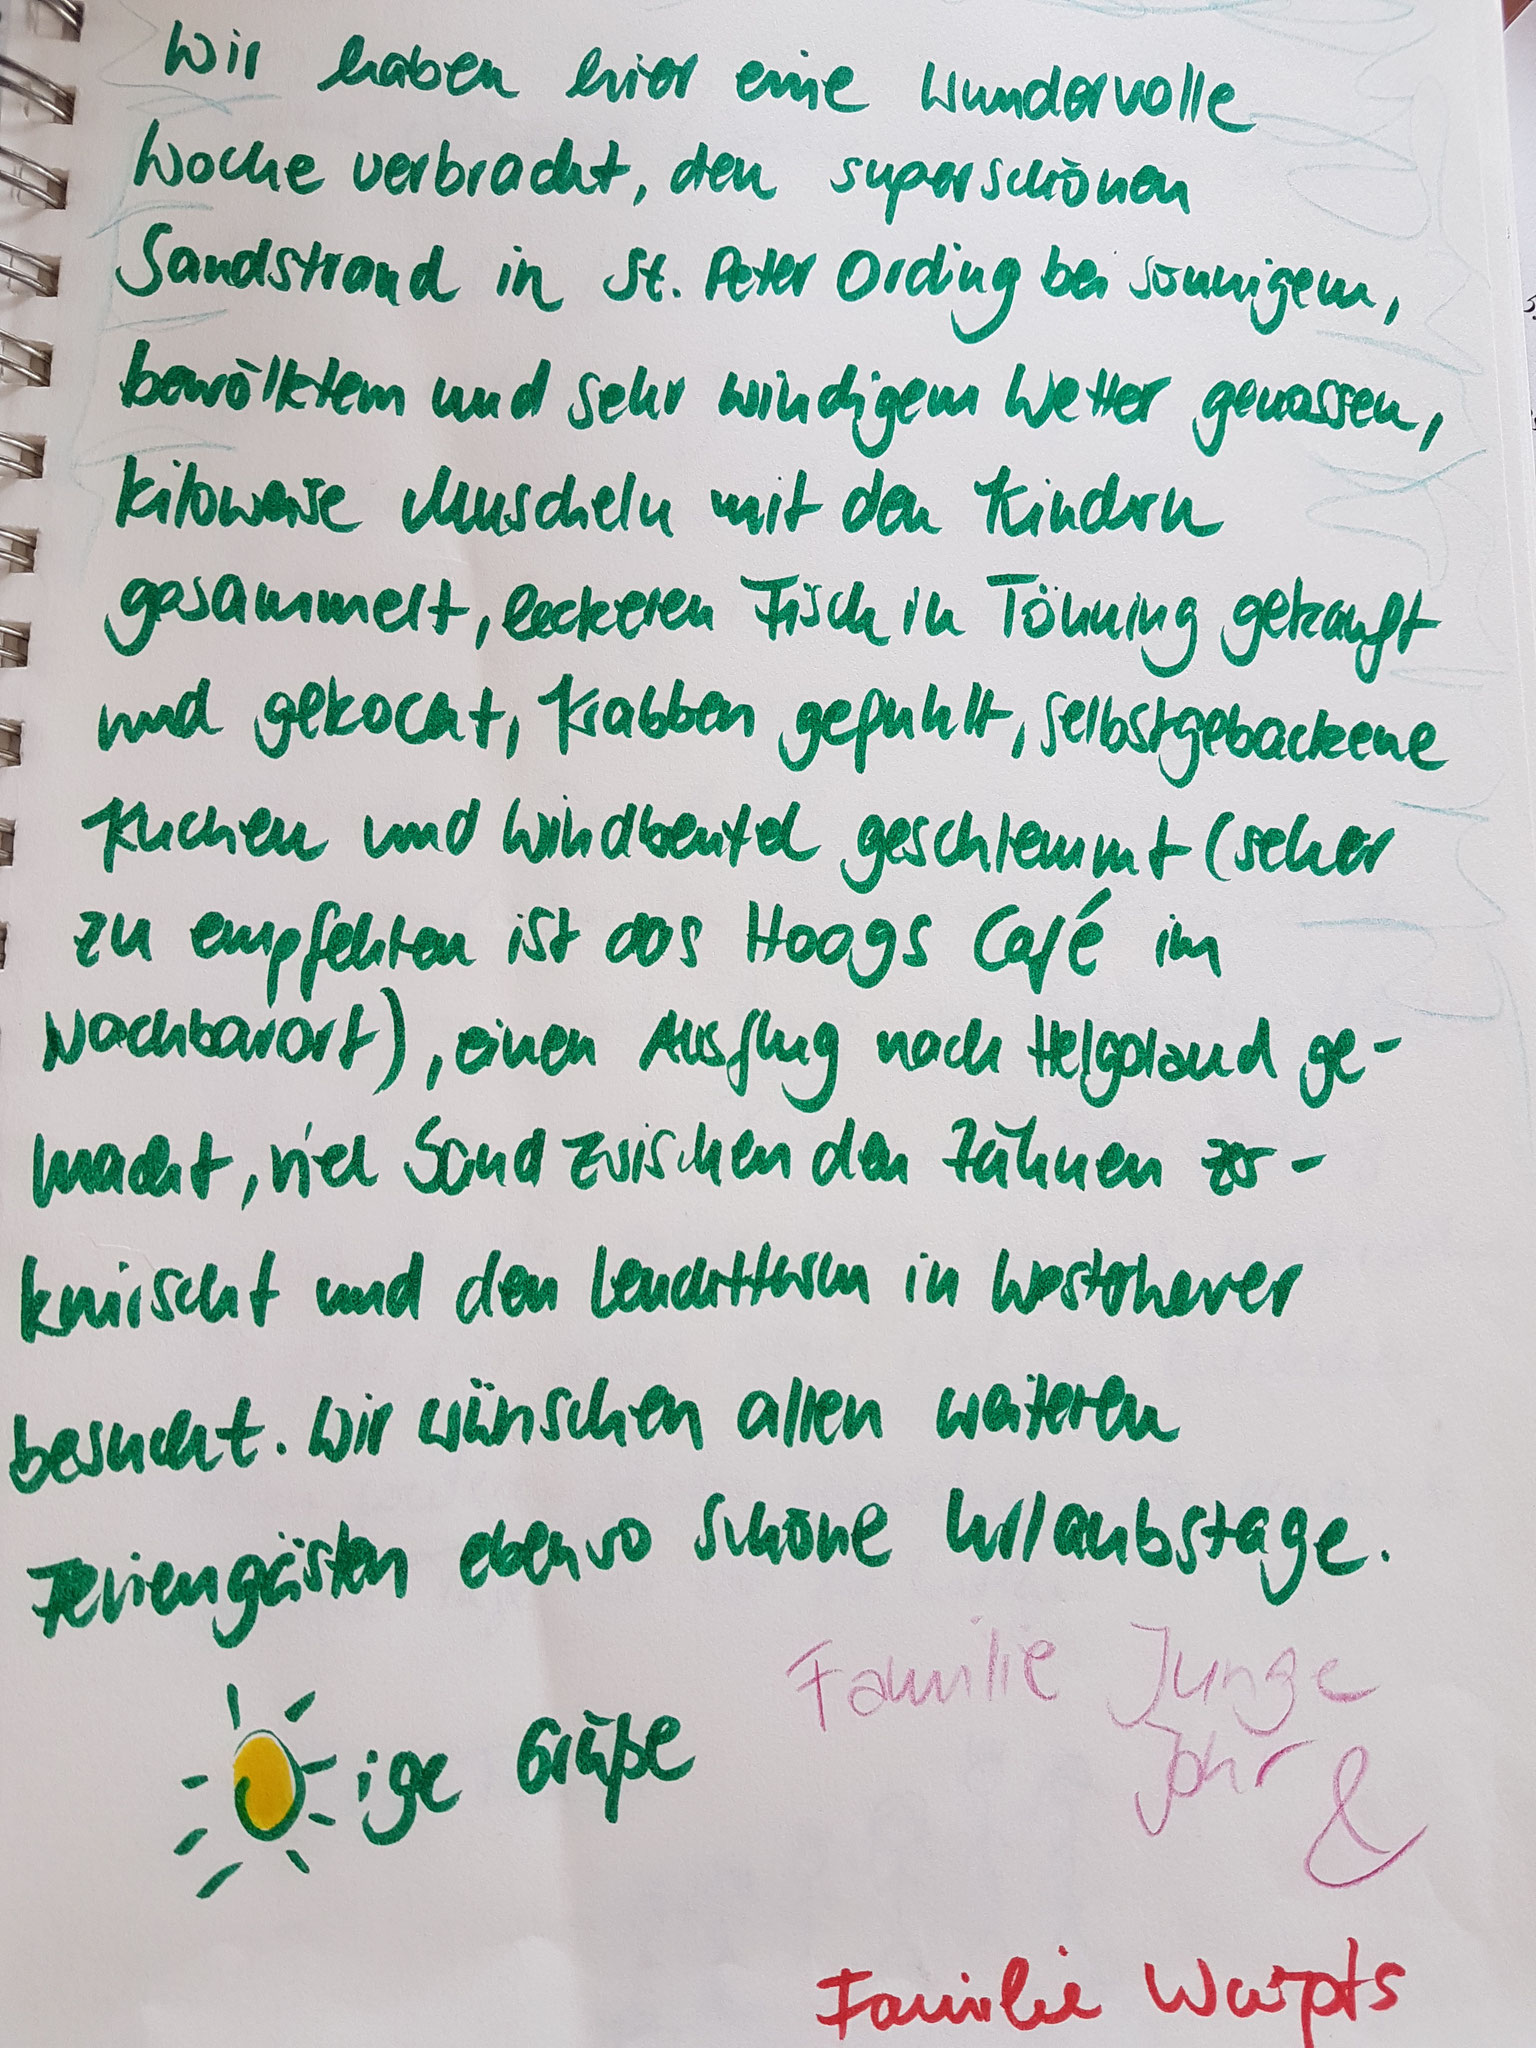 Wir haben hier eine wundervolle
Woche verbracht, den superschönen
Sandstrand in St. Peter Ording bei sonnigem,
bewölktem und sehr windigem Wetter genossen,
kiloweise Muscheln mit den Kindern
gesammelt, leckeren Fisch in Tönning gekauft
und gekocht, Krabben gepuhlt, selbstgebackene
Kuchen und Windbeutel geschlemmt (seher
zu empfehlen ist das Hoogs Café im
Nachbarort), einen Ausflug nach Helgoland ge-
macht, viel Sand zwischen den Zähnen zer-
knirscht und den Leuchtturm in Westerhever
besucht. Wir wünschen allen weiteren
Feriengästen ebenso schöne Urlaubstage.
ige Grüße
Familie Junge
&
Familie Warpts